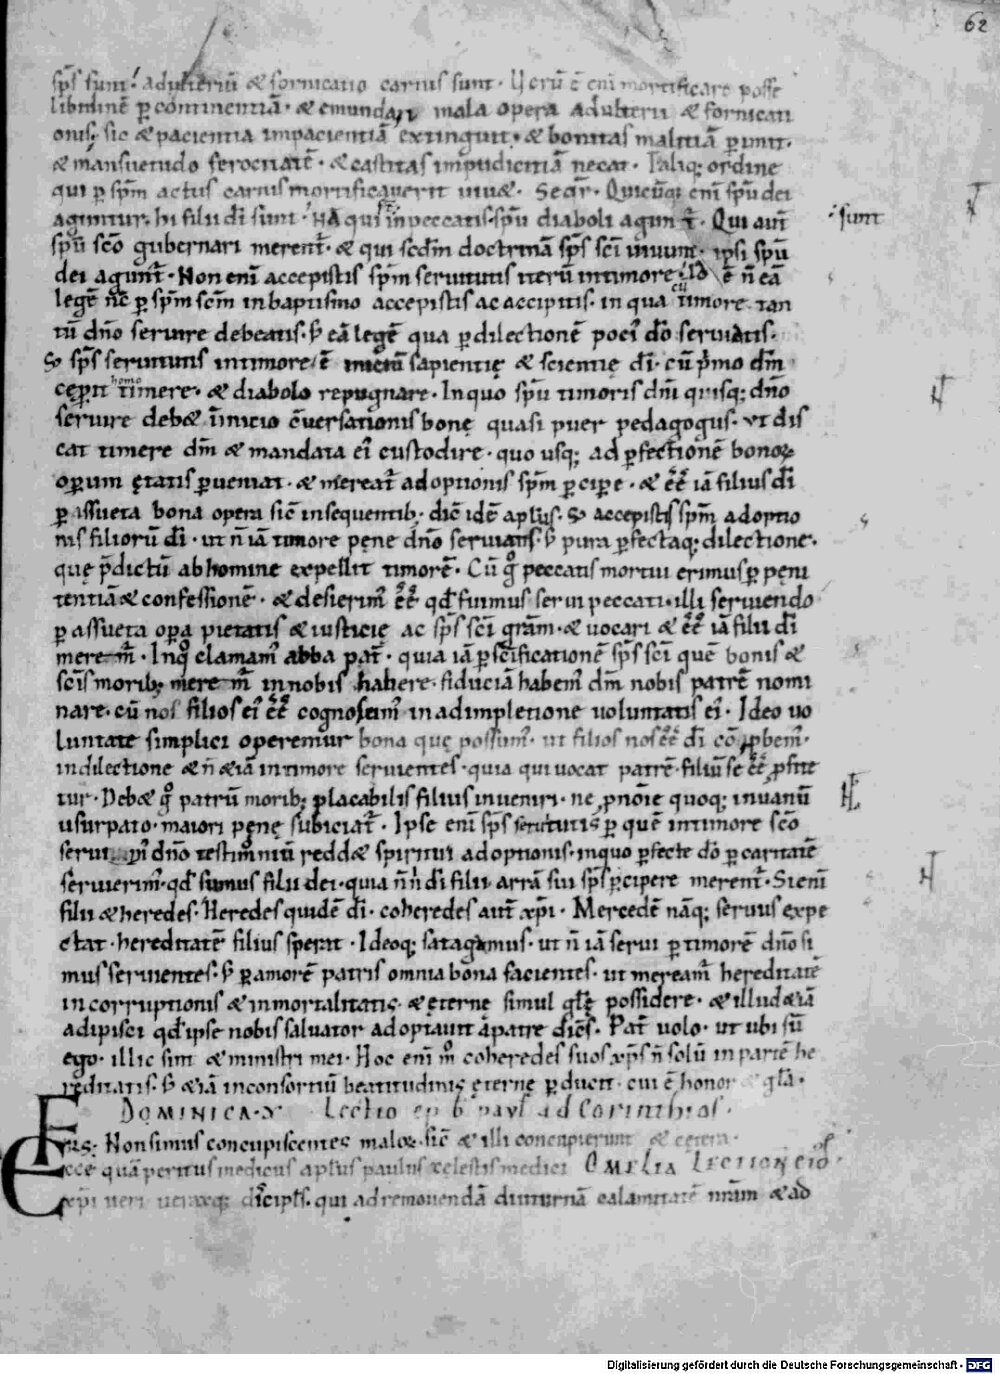 62
sp̄s sunt. adulteriū & fornicatio carnis sunt. Verū ē enī mortificare posse
libidinē p̲ continentiā. & emundari mala opera adulterii & fornicati
onis; sic & pacientia impacientiā extinguit. & bonitas malitiā p̲imit.
& mansuetudo ferocitatē. & castitas impudicitiā necat. Taliq; ordine
qui p̲ sp̄m actus carnis mortificaverit vivæ. Seqr̄. Quicūq; enī sp̄u dei
aguntur. hi filii dī sunt. Nā qui in peccatis. sp̄u diaboli agunt̄. Qui aut̄ sunt
sp̄u sc̄o gubernari merent̄. & qui scdm̄ doctrinā sp̄s sc̄i vivunt. ipsi sp̄u
dei agunt̄. Non enī accepistis sp̄m servitutis iterū in timore. Id ē n̄ eā
legē nc̄ p̲ sp̄m sc̄m in baptismo accepistis ac accipitis. in qua cū timore tan
tū dn̄o servire debeatis. s; eā legē qua p̲ dilectionē poci᷒ dō serviatis.
S; sp̄s servitutis in timore ē initiū sapientię & scientię dī. cū p̄mo dm̄
cęp̲it homo timere. & diabolo repugnare. In quo sp̄u timoris dn̄i quisq; dn̄o
servire debæ in initio c̄versationis bonę quasi puer pedagogus. ut dis
cat timere dm̄ & mandata ei᷒ custodire. quo usq; ad p̲fectionē bonoꝝ
op̲um ętatis p̲veniat. & mereat̄ adoptionis sp̄m p̲cipe. & ēē iā filius dī
p̲ assueta bona opera sic̄ in sequentib; dic̄ idē apl̄us. S; accepistis sp̄m adoptio
nis filiorū dī. ut n̄ iā timore penę dn̄o serviatis. s; pura p̲fectaq; dilectione.
quę p̄dictū ab homine expellit timorē. Cū g̊ peccatis mortui erimus p̲ peni
tentiā & confessionē. & desierim᷒ ēē qđ fuimus servi peccati. illi serviendo
p̲ assueta op̲a pietatis & iusticię ac sp̄s sc̄i gr̄am. & vocari & ēē iā filii dī
meremr̄. In q̊ clamam᷒ abba pat̄. quia iā p̲ sc̄ificationē sp̄s sc̄i quē bonis &
sc̄is morib; meremr̄ in nobis habere. fiduciā habem᷒ dm̄ nobis patrē nomi
nare. cū nos filios ei᷒ ēē cognoscim᷒ in adimpletione voluntatis ei᷒. Ideo vo
luntate simplici operemur bona quę possum᷒. ut filios nos ēē dī cōꝓbem᷒.
in dilectione & n̄ &iā in timore servientes. quia qui vocat patrē. filiū se ēē ꝓfite
tur. Debæ g̊ patrū morib; placabilis filius inveniri. ne ꝓ noīe quoq; in vanū
usurpato. maiori penę subiciat̄. Ipse enī sp̄s servitutis p̲ quē in timore sc̄o
dn̄o testimoniū reddæ spiritui adoptionis. in quo p̲fecte dō p̲ caritatē
servierim᷒. qđ sumus filii dei. quia n̄ n̄ dī filii arrā sui sp̄s p̲cipere merent̄. Si enī
filii & heredes. Heredes quidē dī. coheredes aut̄ xp̄i. Mercedē nāq; servus expe
ctat. hereditatē filius sperat. Ideoq; satagamus. ut n̄ iā servi p̲ timorē dn̄o si
mus servientes. s; p̲ amorē patris omnia bona facientes. ut meream᷒ hereditatē
incorruptionis & inmortalitatis. & ęterne simul gl̄ę possidere. & illud &iā
adipisci qđ ipse nobis salvator adoptavit a patre dic̄s. Pat̄ volo. ut ubi sū
ego. illic sint & ministri mei. Hoc enī m̊ coheredes suos xp̄s n̄ solū in partē he
reditatis. s; &iā in consortiū beatitudinis ęternę p̲ducit. cui ē honor & gl̄a.
DOMINICA. X Lectio ep b pavl ad Corinthios.
FRS; Non simus concupiscentes maloꝝ. sic̄ & illi concupierunt & cetera.
ECCE quā peritus medicus apl̄us paulus cęlestis medici OMELIA LECTION EIƌ
xp̄i veri veraxq; discipl̄s. qui ad removendā diuturnā calamitatē nr̄am & ad
Digitalisierung gefördert durch die Deutsche Forschungsgemeinschaft - DFG